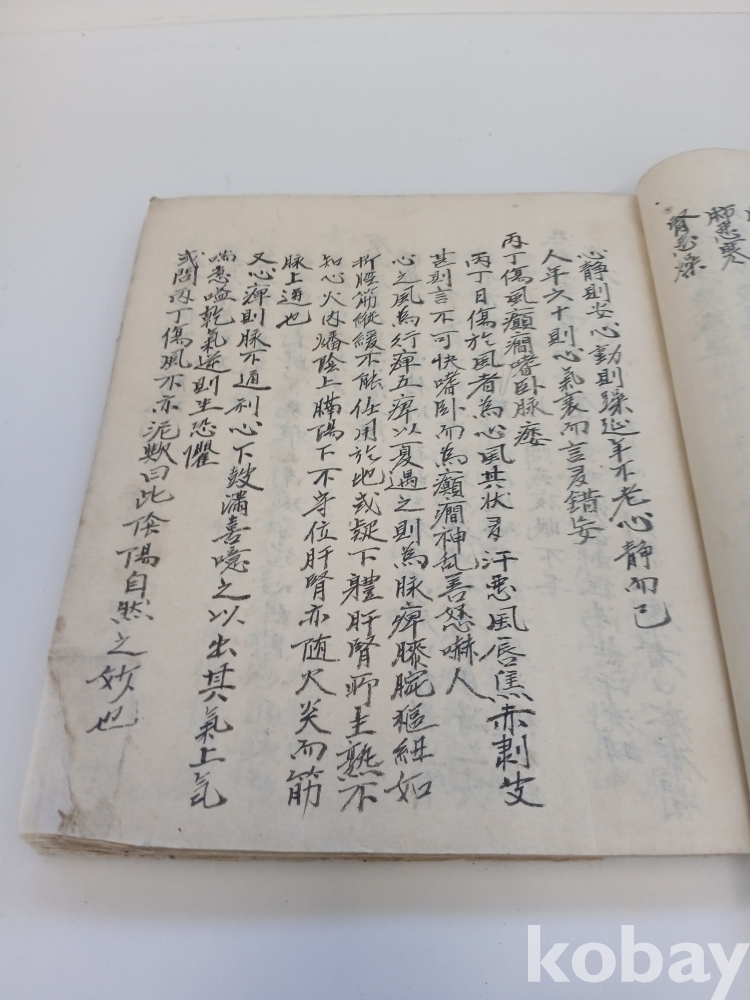 肺惡寒
腎惡燥
心靜則安心動則躁延年不老心靜而已
人年六十則心氣衰而言多錯妄
丙丁傷風癲癎嗜卧脉痿
丙丁日傷於風者為心風其狀多汗惡風唇焦赤剥
甚則言不可快嗜卧而為癲癎神乱善怒嚇人
心之風為行痺五痺以夏遇之則為脉痺膝腕樞紐如
折脛筋縱緩不能任用於地或疑下體肝腎所主熟不
知心火内燔陰上膈陽下不守位肝腎亦随火炎而筋
脉上逆也
又心痺則脉不通利心下鼓滿喜噫之以出其氣上气
喘急嗌乾氣逆則生恐懼
或問丙丁傷風不亦泥歟曰此陰陽自然之妙也
kobay